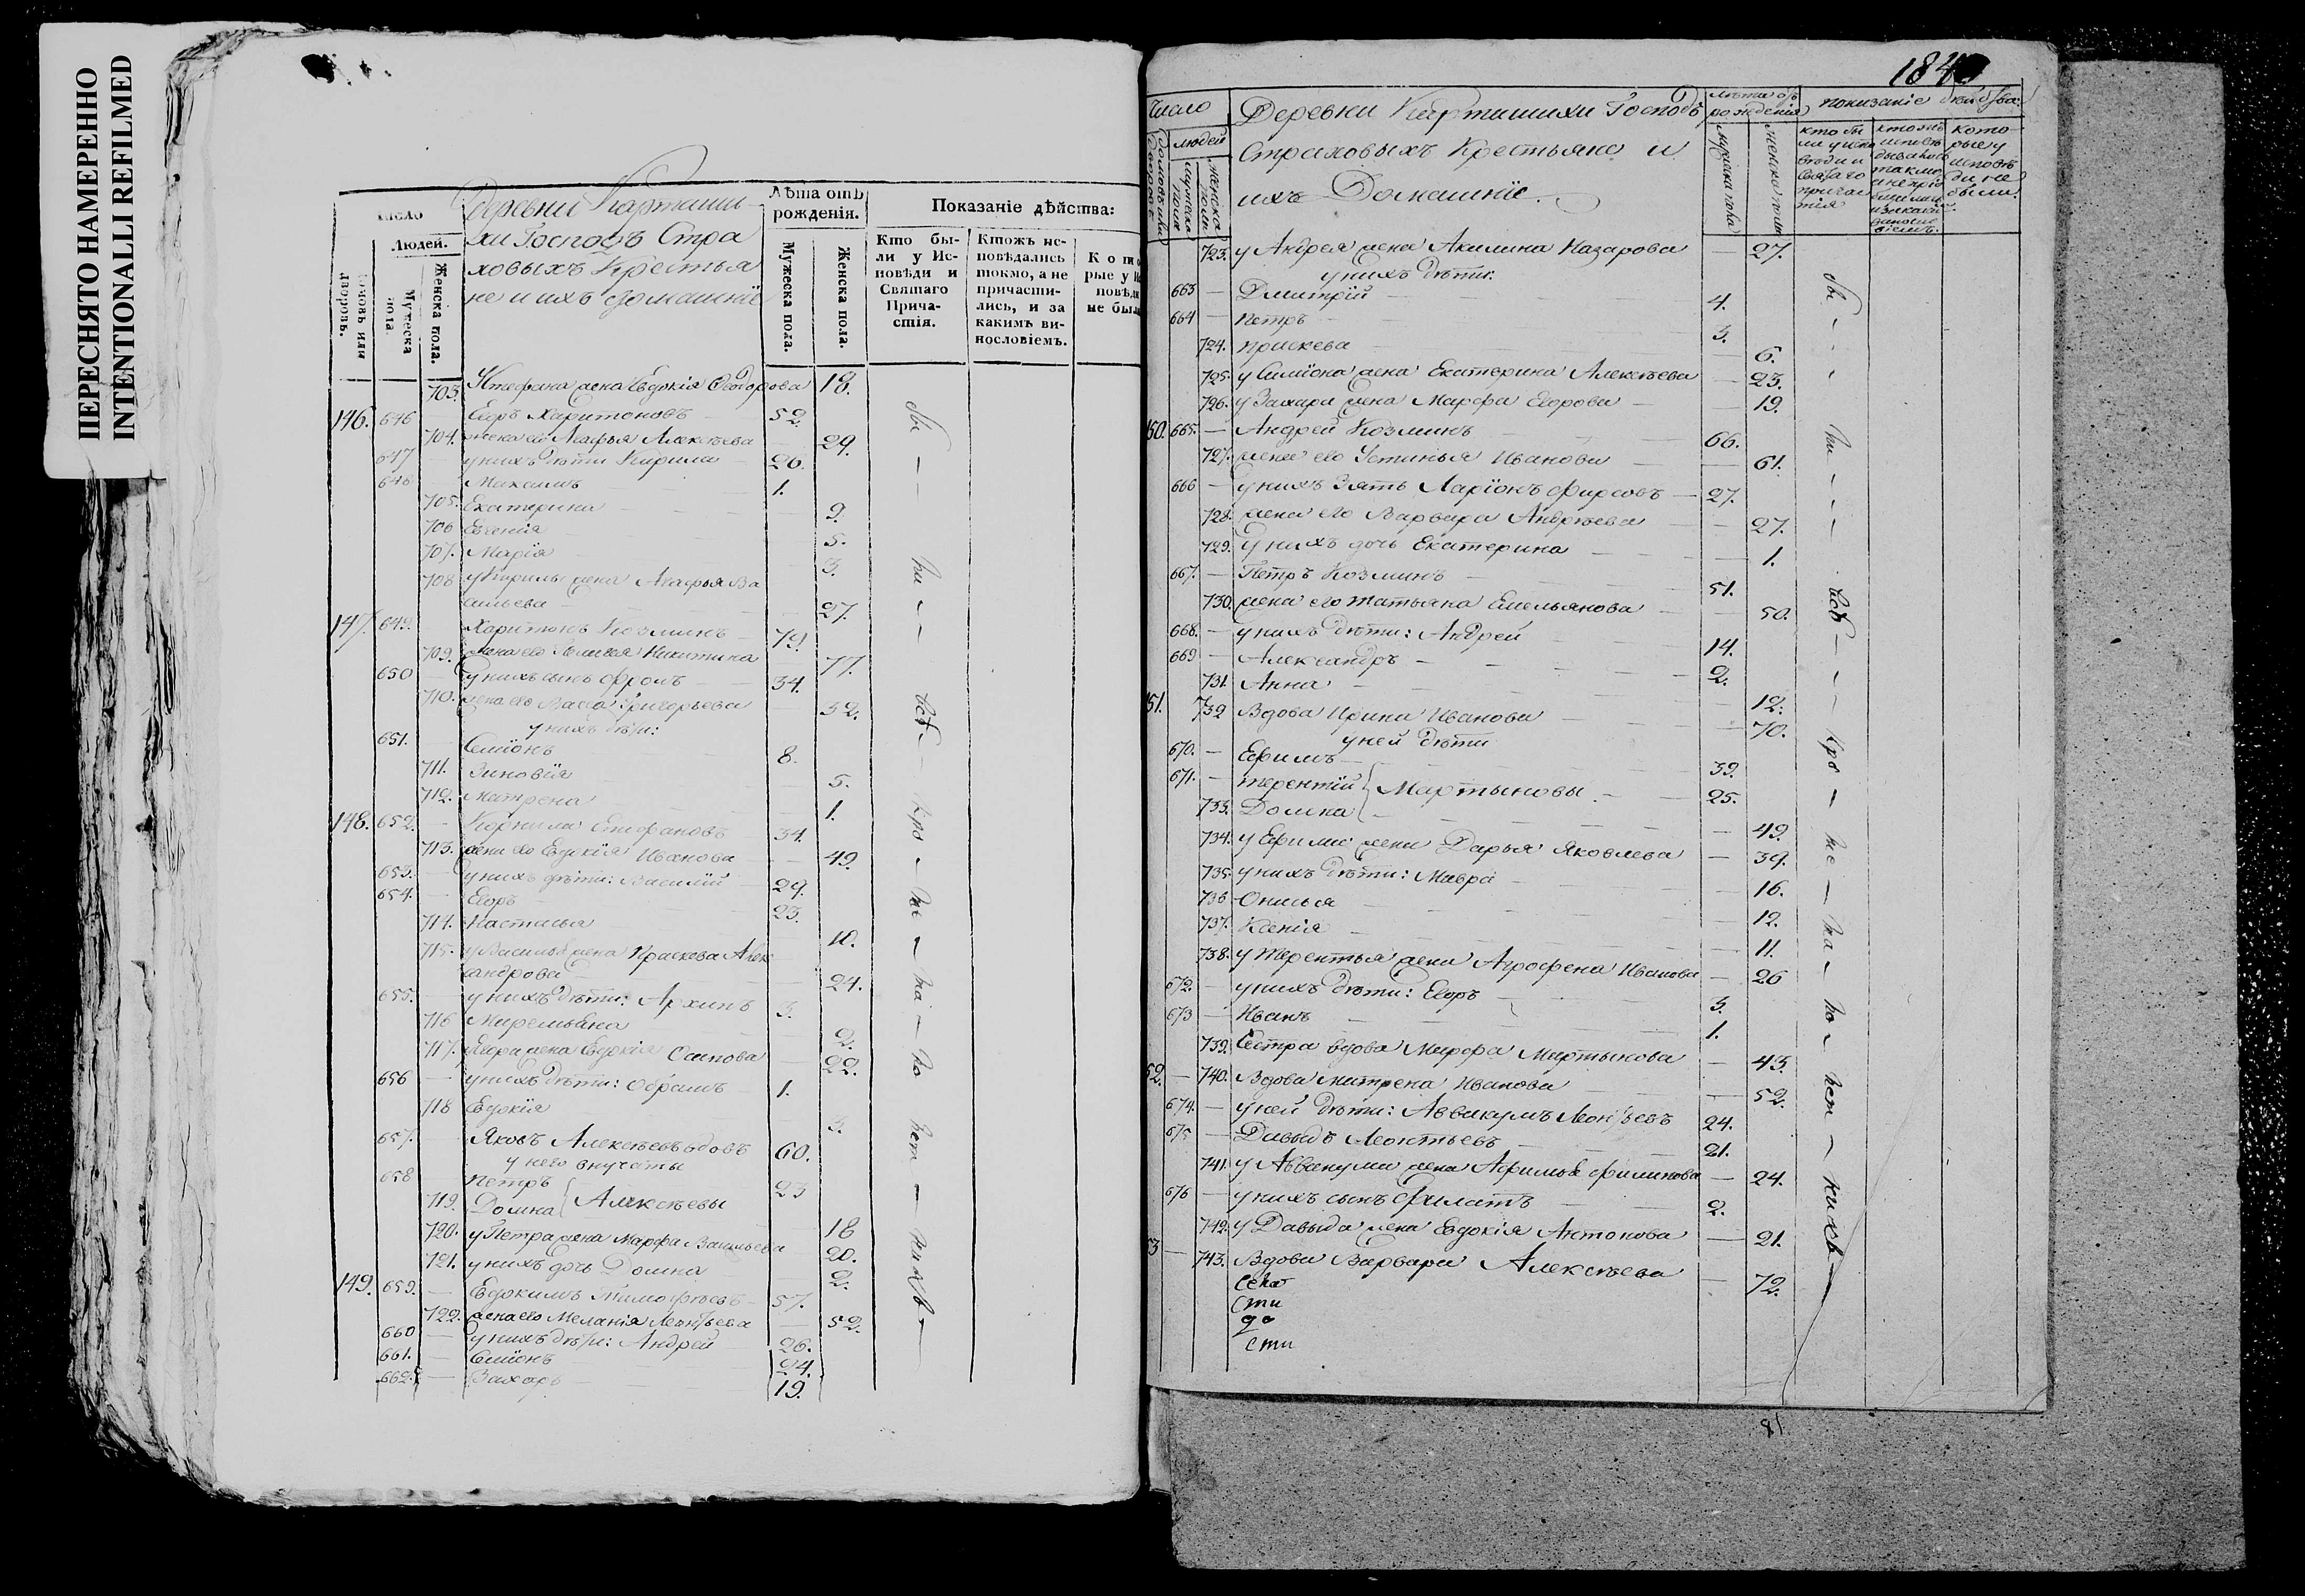 ПЕРЕСНЯТО НАМЕРЕННО
INTENTIONALLI REFILMED
число
Людей.
домовъ или дворовъ.
Мужеска пола.
Женска пола.
Деревни Картиши
хи Господъ Стра
ховыхъ Крестья
не и ихъ домашніе
Лѣта отъ рожденія.
Мужеска пола.
Женска пола.
Показаніе дѣйства:
Кто бы-
ли у Ис-
повѣди и
Святаго
Прича-
стія.
Ктожъ ис-
повѣдались
токмо, а не
причасти-
лись, и за
какимъ ви-
нословіемъ.
703. Стефана жена Евдокія Ѳеодорова 18.
146. 646 Егоръ Харитоновъ 52.
704. жена его Агафья Алексѣева 29.
647 у нихъ дѣти Кирила 26.
648 Максимъ 1.
705. Екатерина 9.
706 Евгенія 5.
707. Марія 3.
708 у Кирилы жена Агафья Ва
сильева 27.
147. 649. Харитонъ Козминъ 79.
709. жена его Никитина 77.
650 у нихъ сынъ Фролъ 34.
710. жена его Васса Григорьева 32.
у нихъ дѣти:
651. Семіонъ 8.
711. Зиновія 5.
712. Матрена 1.
148. 652. Корнила Епифановъ 54.
713. жена его Евдокія Иванова 49.
653. у нихъ дѣти: Василій 29.
654. Егоръ 23.
714. Настасья 10.
715. у Василья жена Праскева Алек
сандрова 24.
655. у нихъ дѣти: Архипъ 3.
716 Маремьяна 2.
717. Егора жена Евдокія Осипова 22.
656 у нихъ дѣти: Абрамъ 1.
718 Евдокія 3.
657. Яковъ Алексѣевъ вдовъ 60.
у него внучаты
658 Петръ 23
719. Домна Алексѣевы 18
720. у Петра жена Марфа Васильева 20.
721. у нихъ дочь Домна 2.
149. 659. Евдокимъ Тимофѣевъ 57.
722. жена его Меланія Леонтьева 52.
660 у нихъ дѣти: Андрей 26.
661. Семіонъ 24.
662. Захаръ 19.
184
Число
людей
Деревни Картишихи Господъ
Страховыхъ Крестьяне и
ихъ Домашніе.
лѣта отъ рожденія
показаніе дѣйства:
мужеска пола
женска пола
723. у Андрея жена Акилина Назарова 27.
у нихъ дѣти:
663 Дмитрій 4.
664 Петръ 3.
724. Праскева 6.
725. у Семіона жена Екатерина Алексѣева 23.
726. у Захара жена Марфа Егорова 19.
150. 665. Андрей Козминъ 66.
727. жена его Устинья Иванова 61.
666 у нихъ зять Ларіонъ Фирсовъ 27.
728. жена его Варвара Андреева 27.
729. у нихъ дочь Екатерина 1.
667. Петръ Козминъ 51.
730. жена его Татьяна Емельянова 50.
668. у нихъ дѣти: Андрей 14.
669 Александръ 2.
731. Анна 12.
151. 732 Вдова Ирина Иванова 70.
у ней дѣти
670. Ефимъ 39.
671. Терентій Мартыновы 25.
733. Домна 49.
734. у Ефима жена Дарья Яковлева 39.
735. у нихъ дѣти: Мавра 16.
736 Онисья 12.
737. Ксенія 11.
738. у Терентья жена Агрофена Иванова 26
672. у нихъ дѣти: Егоръ 3.
673 Иванъ 1.
739. Сестра вдова Марфа Мартынова 43.
52. 740. Вдова Матрена Иванова 52.
674. у ней дѣти: Аввакумъ Леонтьевъ 24.
675 Давыдъ Леонтьевъ 21.
741. у Аввакума жена Афимья Филипова 24.
676 у нихъ сынъ Филатъ 2.
742. у Давыда жена Евдокія Антонова 21.
53 743. Вдова Варвара Алексѣева 72.
сти
до
сти